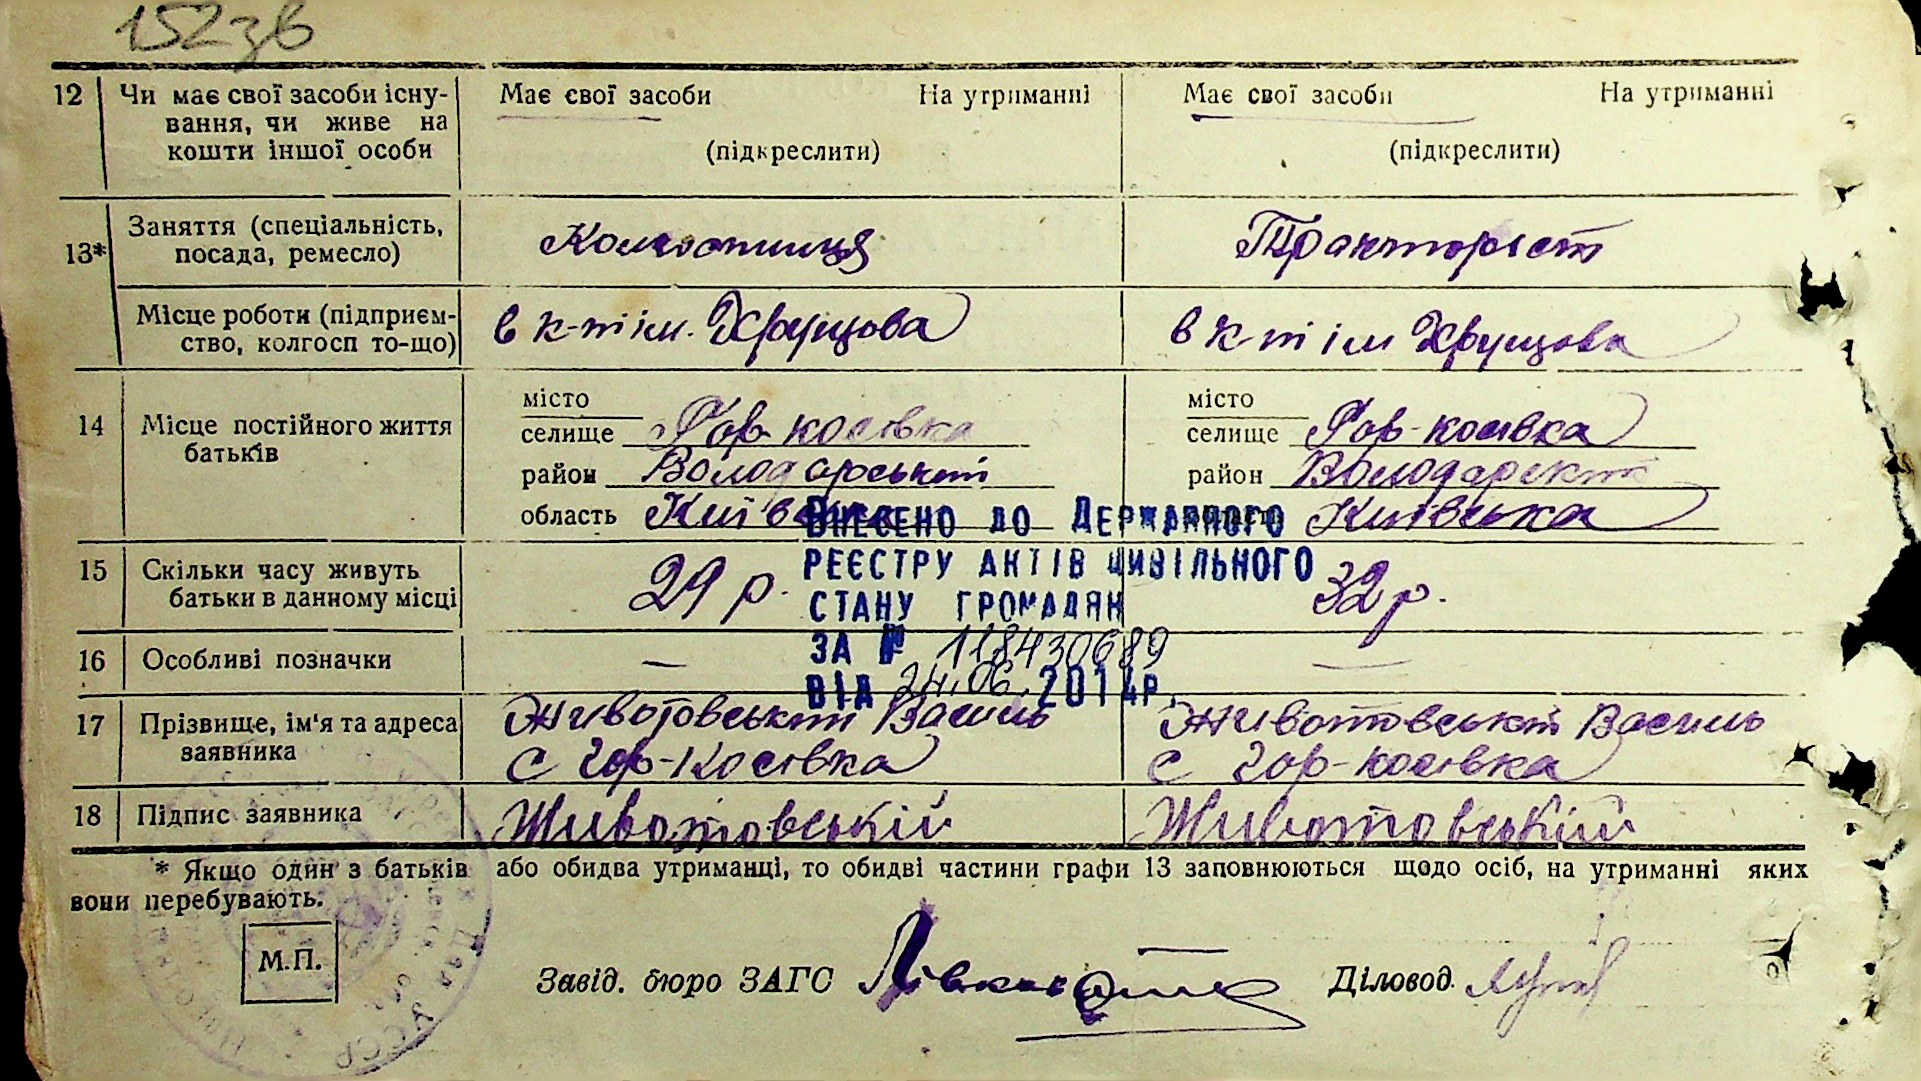 152зв
12 Чи має свої засоби існу- Має свої засоби На утриманні Має свої засоби На утриманні
вання, чи живе на
кошти іншої особи (підкреслити) (підкреслити)
13* Заняття (спеціальність, Колгоспниця Тракторист
посада, ремесло)
Місце роботи (підприєм- в к-пі ім. Хрущова в к-пі ім Хрущова
ство, колгосп то-що)
місто місто
14 Місце постійного життя селище Гор-косівка селище Гор-косівка
батьків район Володарський район Володарський
область Київська область Київська
15 Скільки часу живуть 29 р. 32 р.
батьки в данному місці
16 Особливі позначки — —
ВНЕСЕНО ДО ДЕРЖАВНОГО
РЕЄСТРУ АКТІВ ЦИВІЛЬНОГО
СТАНУ ГРОМАДЯН
ЗА № 118430689
ВІД 24.06.2014р.
17 Прізвище, ім'я та адреса Животовський Василь Животовський Василь
заявника с Гор-Косівка с Гор-косівка
18 Підпис заявника Животовській Животовській
* Якщо один з батьків або обидва утриманці, то обидві частини графи 13 заповнюються щодо осіб, на утриманні яких
вони перебувають.
М.П. Завід. бюро ЗАГС Діловод.